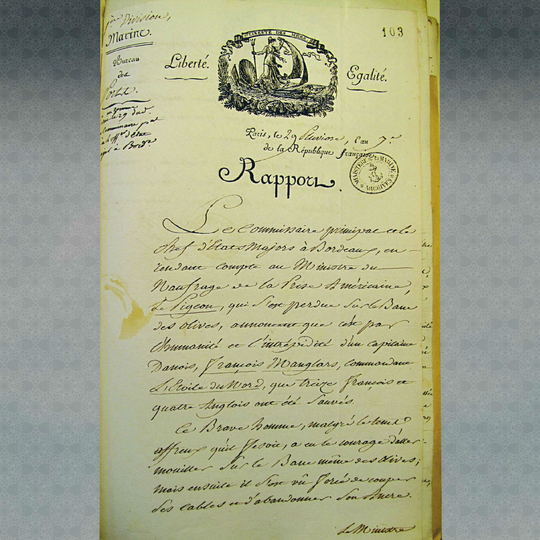 103
Division,
Marine.
Bureau
des
Ports.
LIBERTÉ DES MERS
Liberté.
Egalité.
Paris, le 29 Pluviose, l'an 7e
de la République française
MINISTERE DE LA MARINE
ARCHIVES
Rapport.
Le Commissaire principal et le
chef d'Etats Majors à Bordeaux, en
rendant compte au Ministre du
Naufrage de la Prise Américaine,
Le Pigeon, qui s'est perdue sur le Banc
des olives, annoncent que c'est par
l'humanité et l'intrépidité d'un capitaine
Danois, François Manglars, commandant
L'Etoile du Nord, que treize françois et
quatre Anglois ont été sauvés.
Ce Brave homme, malgré le tems
affreux qu'il fesoit, a eu le courage d'aller
mouiller sur le Banc même des olives;
mais ensuite il s'est vû forcé de couper
ses cables et d'abandonner son Ancre.
Le Ministre